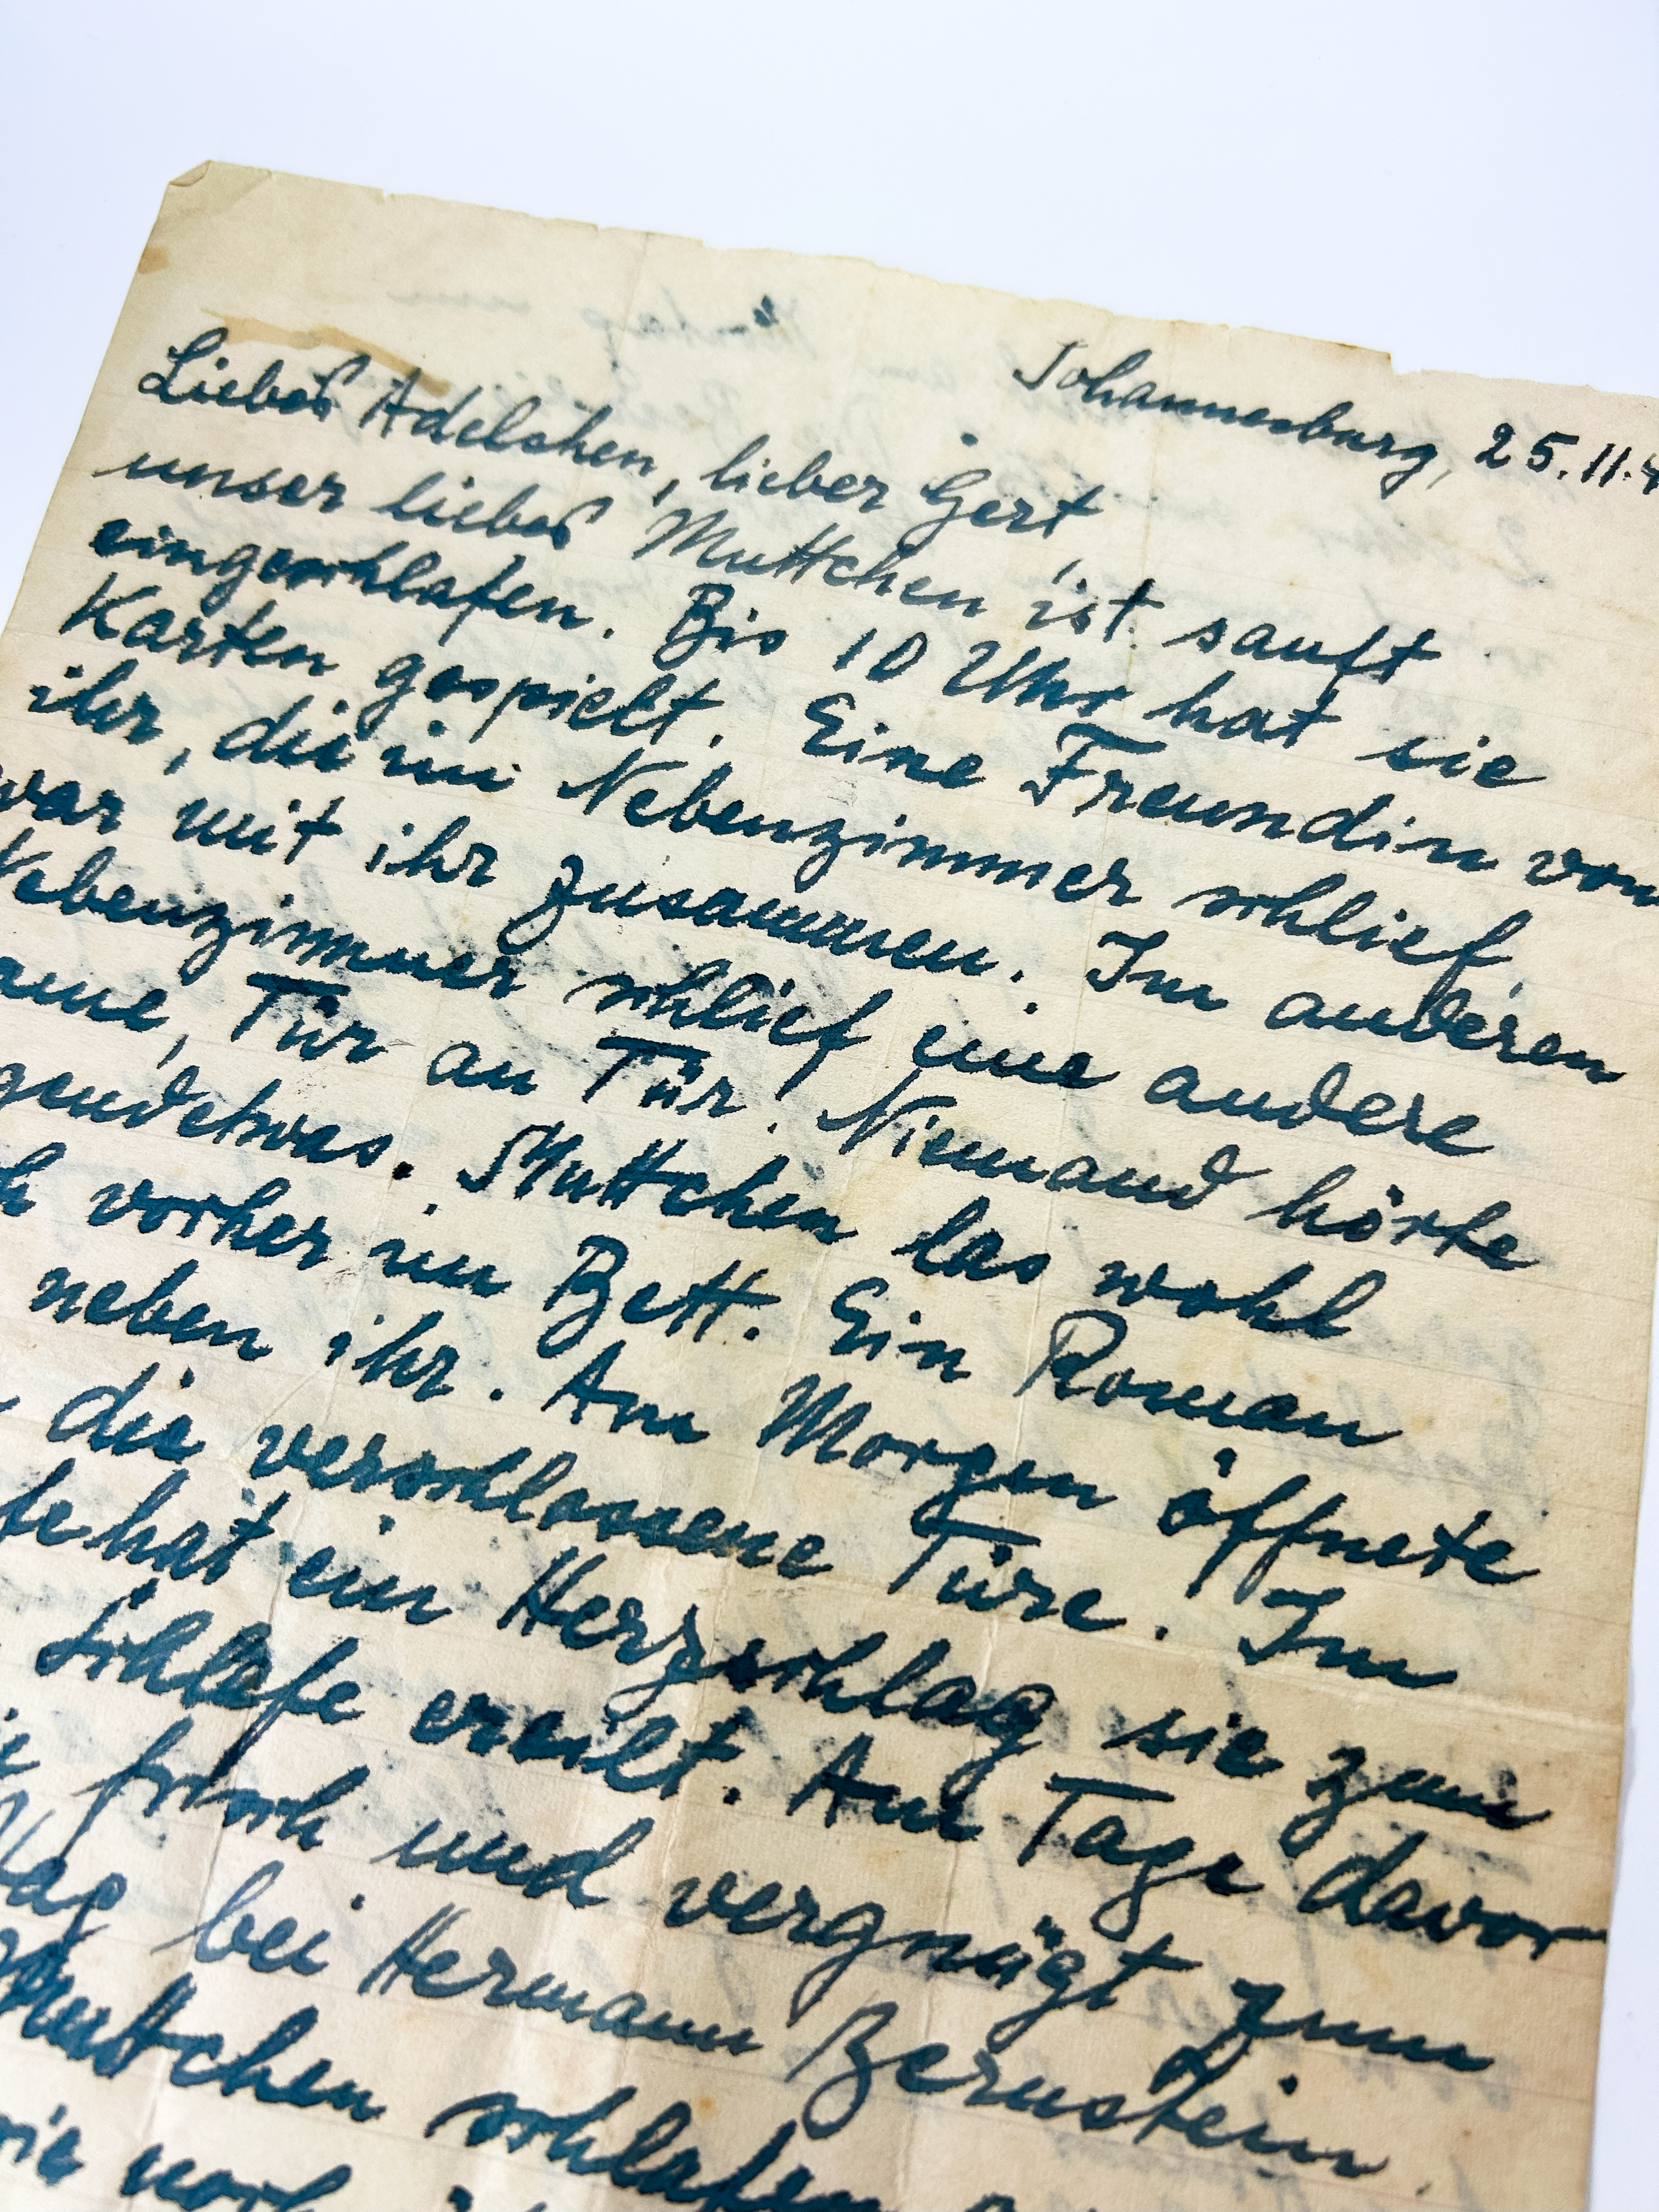 Johannesburg, 25.11.4
Liebes Adelchen, lieber Gert,
unser liebes Muttchen ist sanft
eingeschlafen. Bis 10 Uhr hat sie
Karten gespielt. Eine Freundin von
ihr, die im Nebenzimmer schlief,
war mit ihr zusammen. Im anderen
Nebenzimmer schlief eine andere
ame, Tür an Tür! Niemand hörte
gendetwas. Muttchen las wohl
h vorher im Bett. Ein Roman
neben ihr. Am Morgen öffnete
die verschlossene Türe! Im
fe hat ein Herzschlag sie zum
Schlafe ereilt. Am Tage davor
frisch und vergnügt zum
ttag bei Hermann Bernstein.
Muttchen schlafen
wie noch